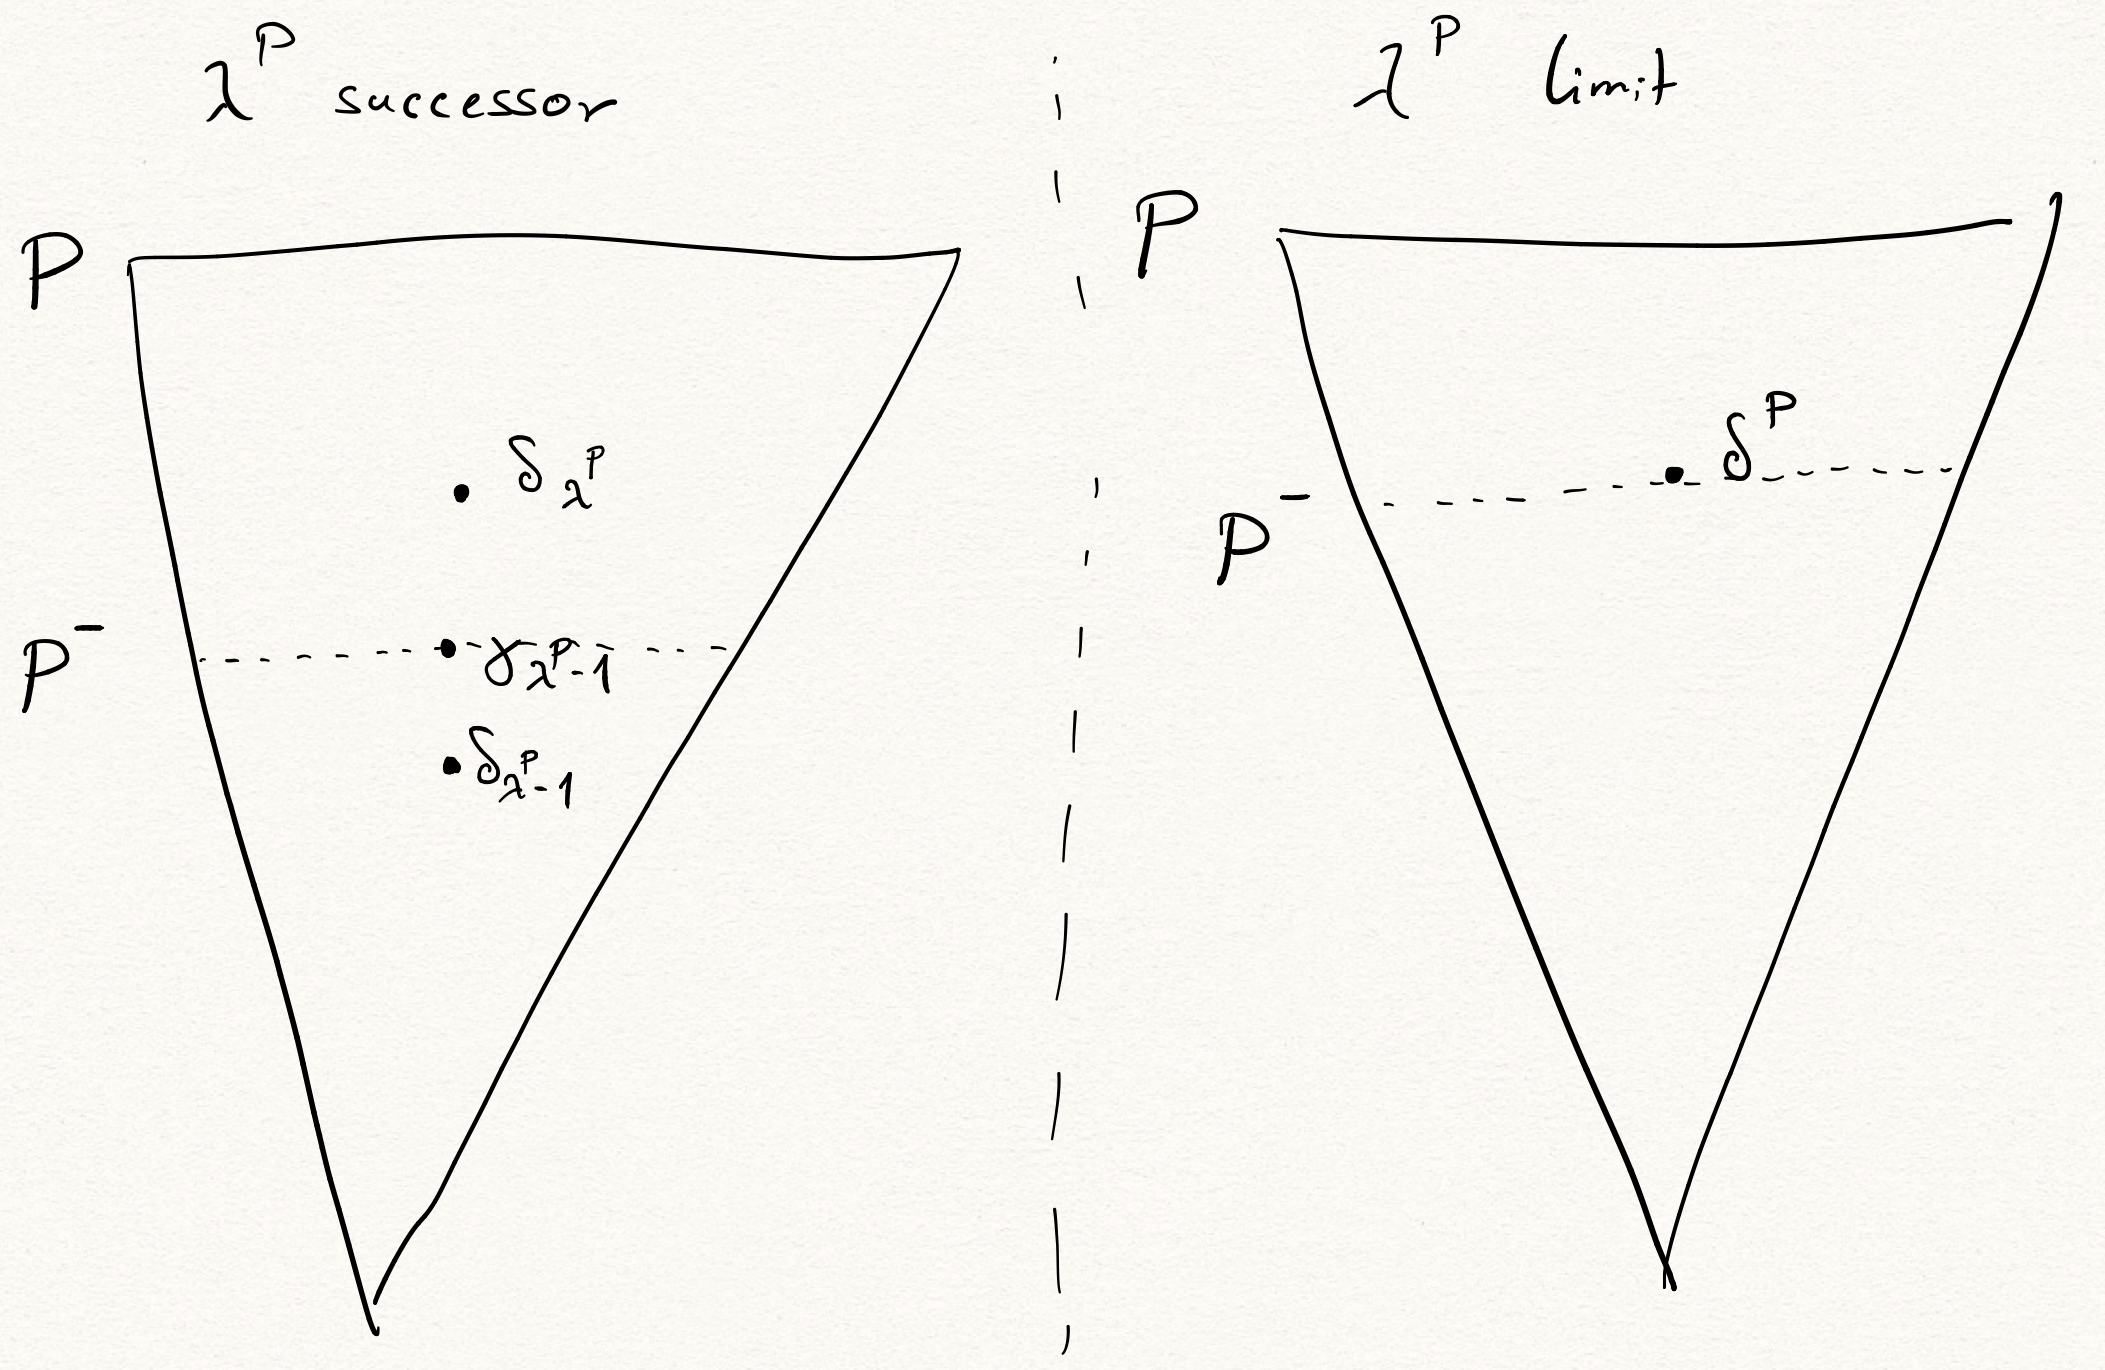 λ^P successor
P
δ_{λ^P}
P^-
γ_{λ^P-1}
δ_{λ^P-1}
λ^P limit
P
δ^P
P^-